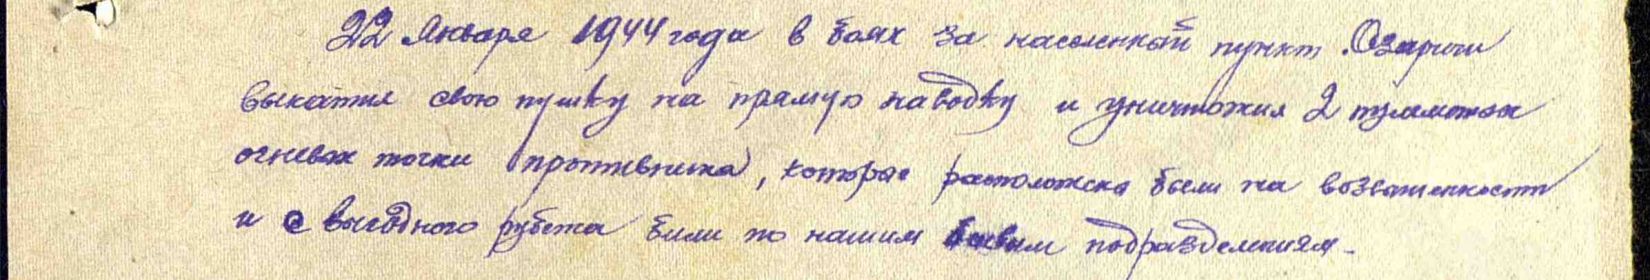 22 Января 1944 года в боях за населенный пункт Озаричи
выкатил свою пушку на прямую наводку и уничтожил 2 пулеметных
огневых точки противника, которые расположены были на возвышенности
и с выгодного рубежа били по нашим боевым подразделениям.